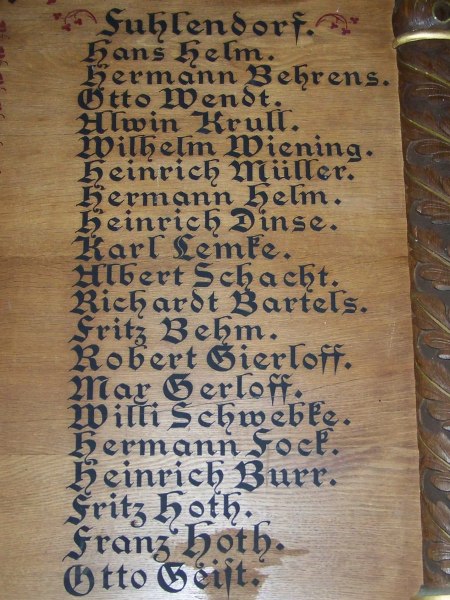 Fuhlendorf.
Hans Helm.
Hermann Behrens.
Otto Wendt.
Alwin Krull.
Wilhelm Wiening.
Heinrich Müller.
Hermann Helm.
Heinrich Dinse.
Karl Lemke.
Albert Schacht.
Richardt Bartels.
Fritz Behm.
Robert Gierloff.
Max Gerloff.
Willi Schwebke.
Hermann Fock.
Heinrich Burr.
Fritz Hoth.
Franz Hoth.
Otto Geist.